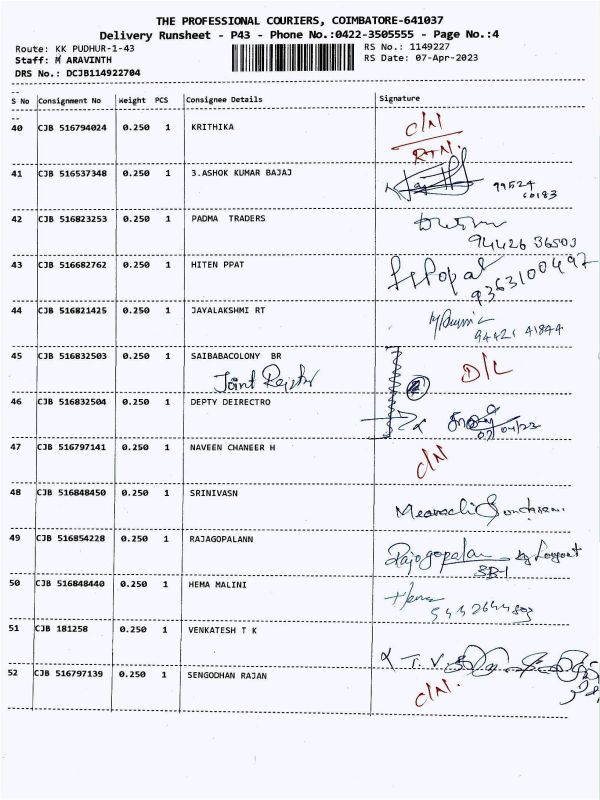 THE PROFESSIONAL COURIERS, COIMBATORE-641037
Delivery Runsheet - P43 - Phone No.:0422-3505555 - Page No.:4
Route: KK PUDHUR-1-43 RS No.: 1149227
Staff: M ARAVINTH RS Date: 07-Apr-2023
DRS No.: DCJB114922704
S No Consignment No Weight PCS Consignee Details Signature
40 CJB 516794024 0.250 1 KRITHIKA C/N
RTN.
41 CJB 516537348 0.250 1 3.ASHOK KUMAR BAJAJ 99524
60183
42 CJB 516823253 0.250 1 PADMA TRADERS
94426 36503
43 CJB 516682762 0.250 1 HITEN PPAT
9363100497
44 CJB 516821425 0.250 1 JAYALAKSHMI RT
94421 41844
45 CJB 516832503 0.250 1 SAIBABACOLONY BR D/L
Joint Register
46 CJB 516832504 0.250 1 DEPTY DEIRECTRO
07/04/23
47 CJB 516797141 0.250 1 NAVEEN CHANEER H C/N
48 CJB 516848450 0.250 1 SRINIVASN
49 CJB 516854228 0.250 1 RAJAGOPALANN Rajogopalan
50 CJB 516848440 0.250 1 HEMA MALINI Hema
51 CJB 181258 0.250 1 VENKATESH T K
T. V.
52 CJB 516797139 0.250 1 SENGODHAN RAJAN C/N.